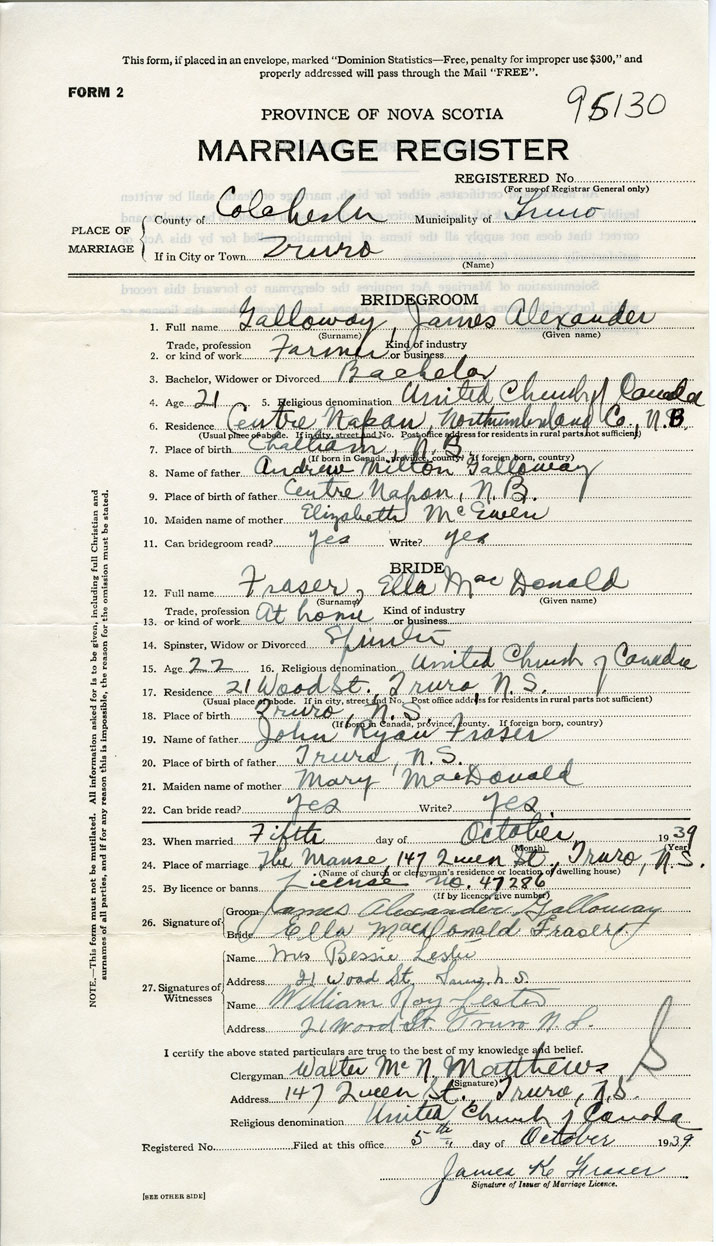 This form, if placed in an envelope, marked "Dominion Statistics—Free, penalty for improper use $300," and
properly addressed will pass through the Mail "FREE".
FORM 2
95130
PROVINCE OF NOVA SCOTIA
MARRIAGE REGISTER
REGISTERED No.
(For use of Registrar General only)
PLACE OF MARRIAGE
County of Colchester Municipality of Truro
If in City or Town Truro
(Name)
BRIDEGROOM
1. Full name Galloway, James Alexander
(Surname) (Given name)
2. Trade, profession or kind of work Farmer Kind of industry or business
3. Bachelor, Widower or Divorced Bachelor
4. Age 21 5. Religious denomination United Church of Canada
6. Residence Centre Napan, Northumberland Co., N.B
(Usual place of abode. If in city, street and No. Post office address for residents in rural parts not sufficient)
7. Place of birth Chatham, N.S.
(If born in Canada, province, county. If foreign born, country)
8. Name of father Andrew Milton Galloway
9. Place of birth of father Centre Napan, N.B.
10. Maiden name of mother Elizabeth McEwen
11. Can bridegroom read? yes Write? yes
BRIDE
12. Full name Fraser, Ella MacDonald
(Surname) (Given name)
13. Trade, profession or kind of work At home Kind of industry or business
14. Spinster, Widow or Divorced Spinster
15. Age 22 16. Religious denomination United Church of Canada
17. Residence 21 Wood St., Truro, N.S.
(Usual place of abode. If in city, street and No. Post office address for residents in rural parts not sufficient)
18. Place of birth Truro, N.S.
(If born in Canada, province, county. If foreign born, country)
19. Name of father John Ryan Fraser
20. Place of birth of father Truro, N.S.
21. Maiden name of mother Mary MacDonald
22. Can bride read? yes Write? yes
23. When married Fifth day of October 1939
(Month) (Year)
24. Place of marriage The Manse, 147 Queen St., Truro, N.S.
(Name of church or clergyman's residence or location of dwelling house)
25. By licence or banns License no. 47286
(If by licence, give number)
26. Signature of
Groom James Alexander Galloway
Bride Ella MacDonald Fraser
27. Signatures of Witnesses
Name Mrs Bessie Leslie
Address 21 Wood St. Truro, N.S.
Name William Roy
Address 21 Wood St. Truro N.S.
I certify the above stated particulars are true to the best of my knowledge and belief.
Clergyman Walter McN. Matthews
(Signature)
Address 147 Queen St., Truro, N.S.
Religious denomination United Church of Canada
Registered No. Filed at this office 5th day of October 1939.
James K Fraser
Signature of Issuer of Marriage Licence.
[SEE OTHER SIDE]
NOTE.—This form must not be mutilated. All information asked for is to be given, including full Christian and
surnames of all parties, and if for any reason this is impossible, the reason for the omission must be stated.